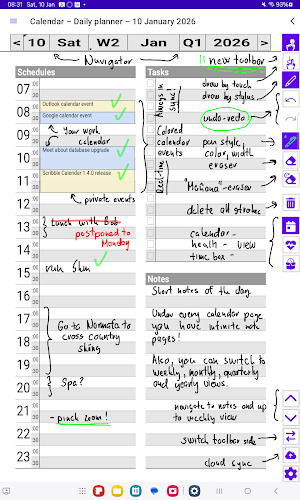 08:31 Sat, 10 Jan
93%
Calendar – Daily planner – 10 January 2026
< 10 Sat W2 Jan Q1 2026 >
Navigator
new toolbar
Schedules
07 00
08 00
Outlook calendar event
Google calendar event
09 00
Your work
calendar
10 00
Meet about database upgrade
11 00
Scribble Calendar 1.4.0 release
12 00
private events
13 00
Lunch with Bob
postponed to
Monday
14 00
15 00
run 5km
16 00
17 00
18 00
Go to Normafa to
cross country
skiing
19 00
20 00
Spa?
21 00
- pinch zoom!
22 00
23 00
Tasks
Always in
sync!
draw by touch
draw by stylus
undo-redo
Colored
calendar
events
Real-time
pen style,
color, width
eraser
"Mohawk"-eraser
delete all strokes
calendar -
health - view
time box -
Notes
Short notes of the day
Under every calendar page
you have infinite note
pages!
Also, you can switch to
weekly, monthly, quarterly
and yearly views.
navigate to notes and up
to weekly view
switch toolbar side
cloud sync